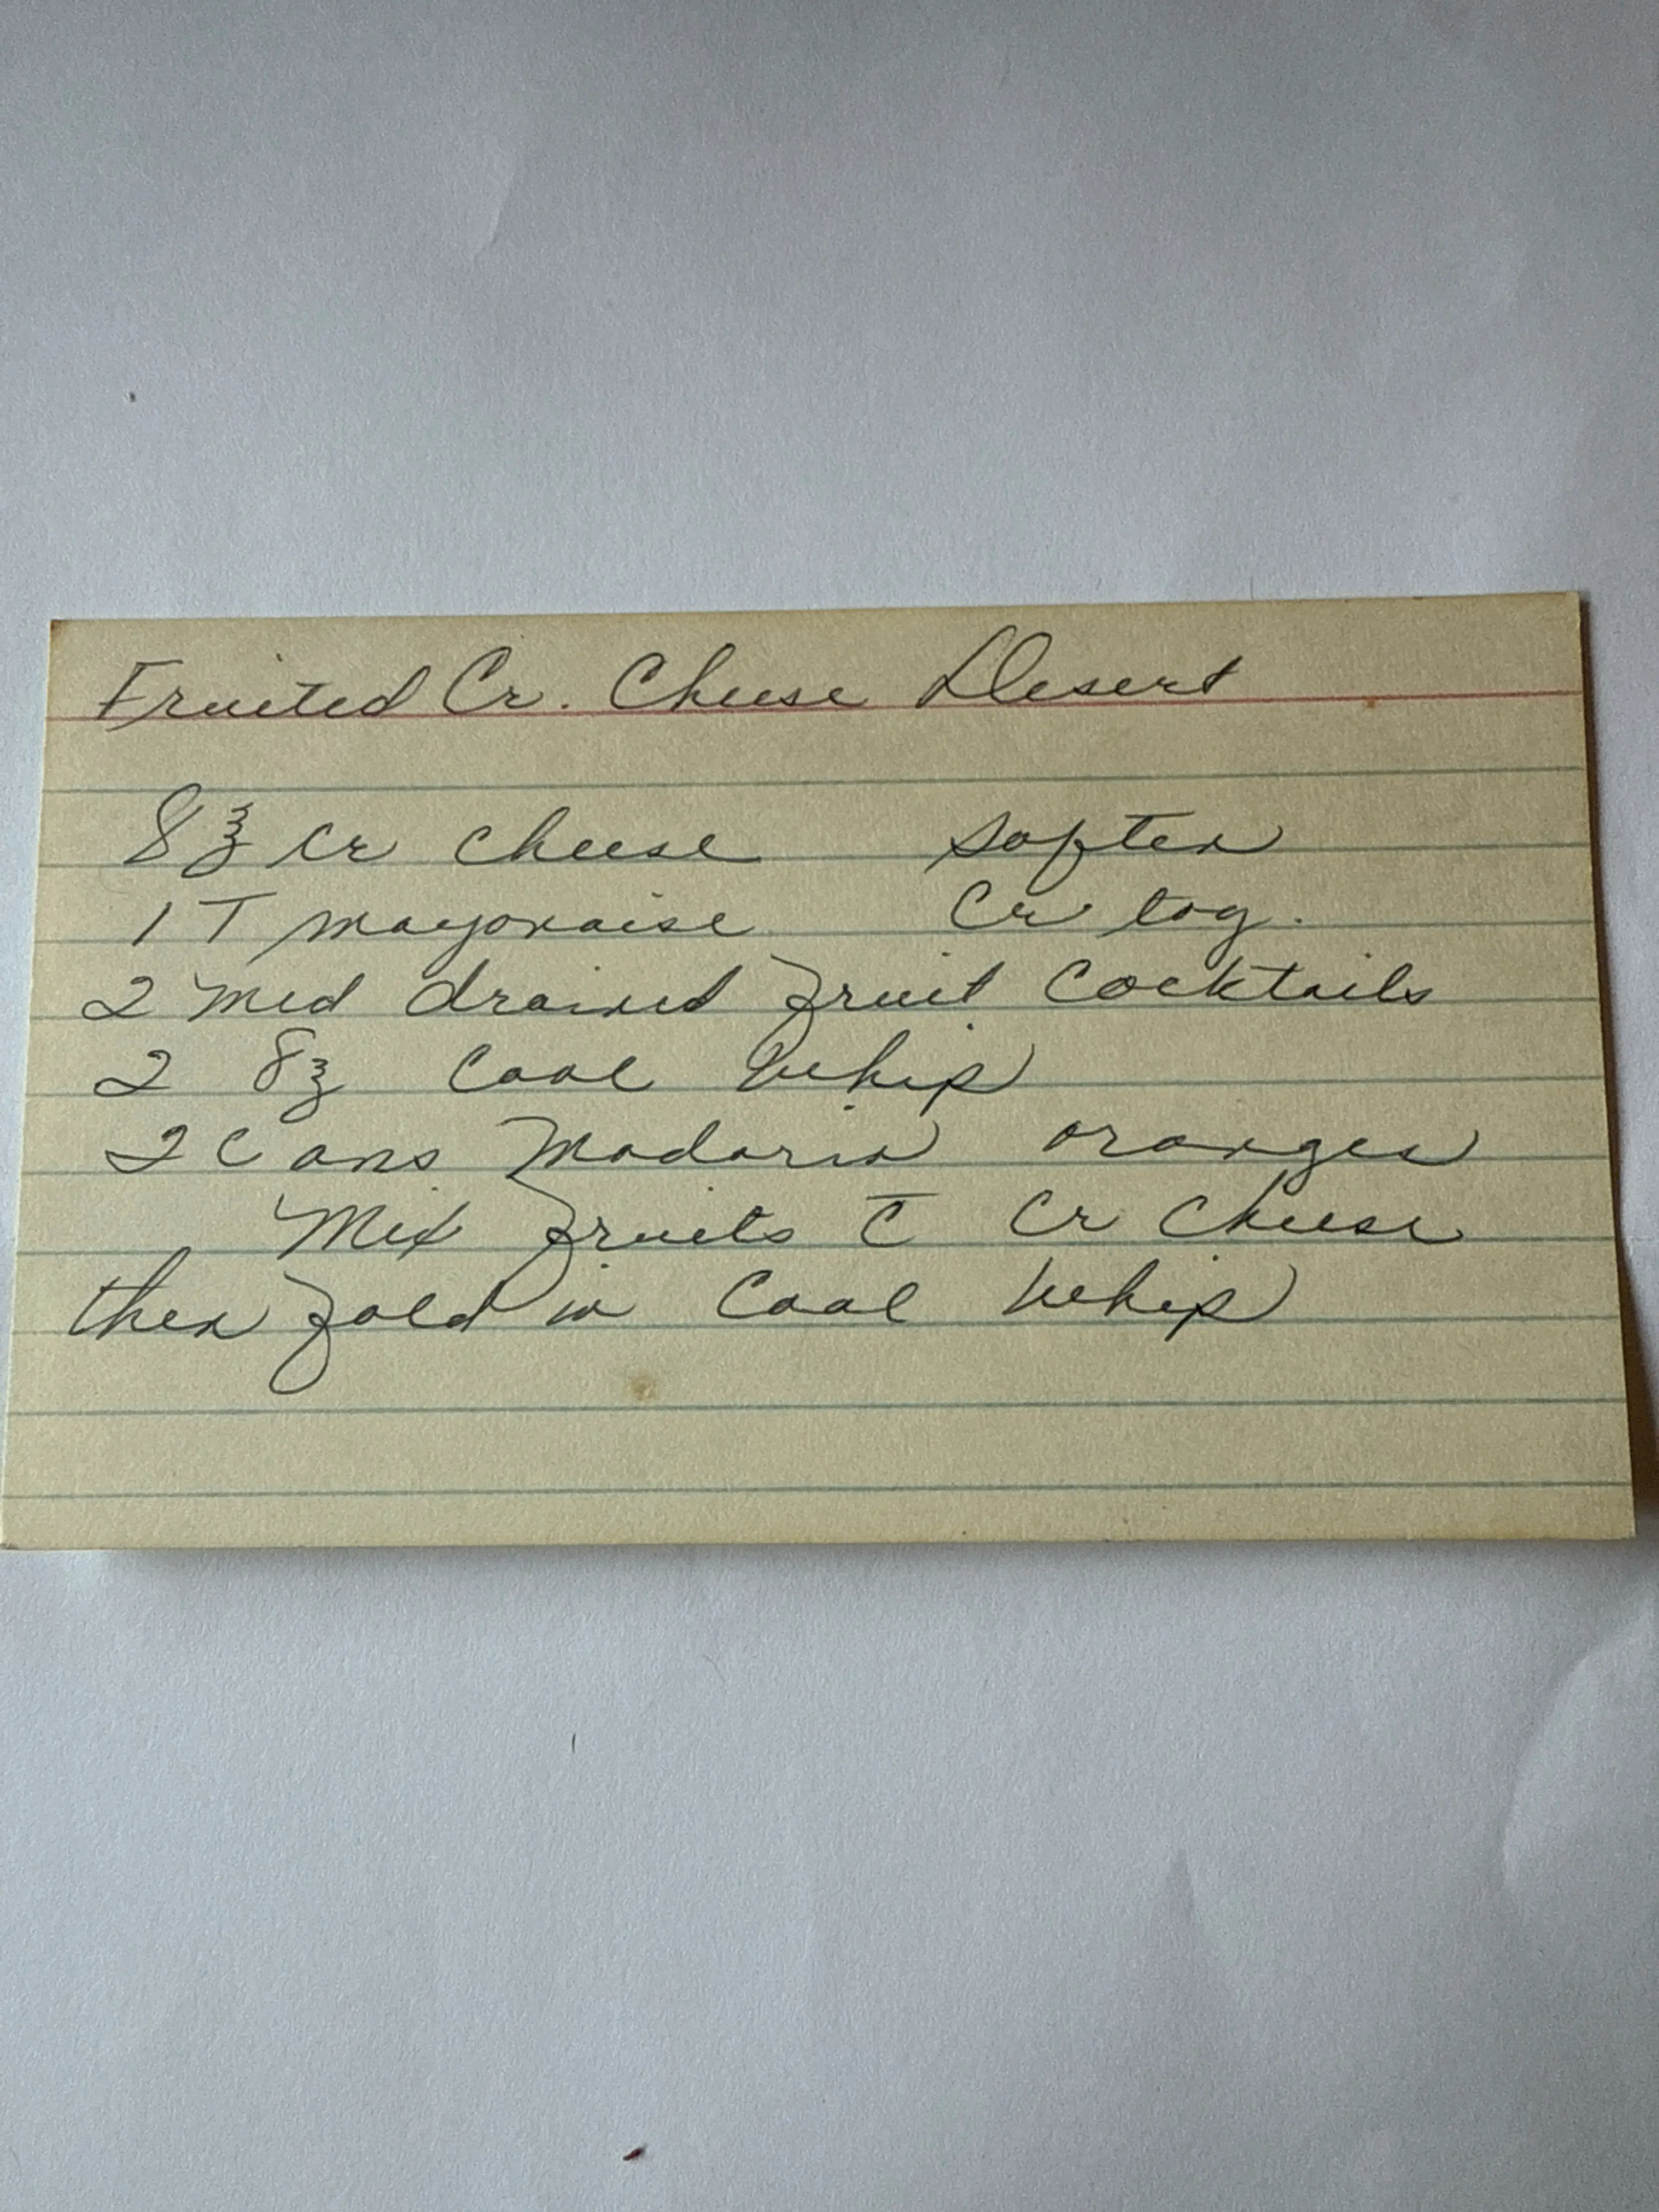 Fruited Cr. Cheese Desert
8 ℥ cr cheese soften
1 T mayonaise Cr tog.
2 med drained fruit cocktails
2 8℥ Cool Whip
2 Cans Madarin oranges
Mix fruits c̄ cr cheese
then fold in Cool Whip